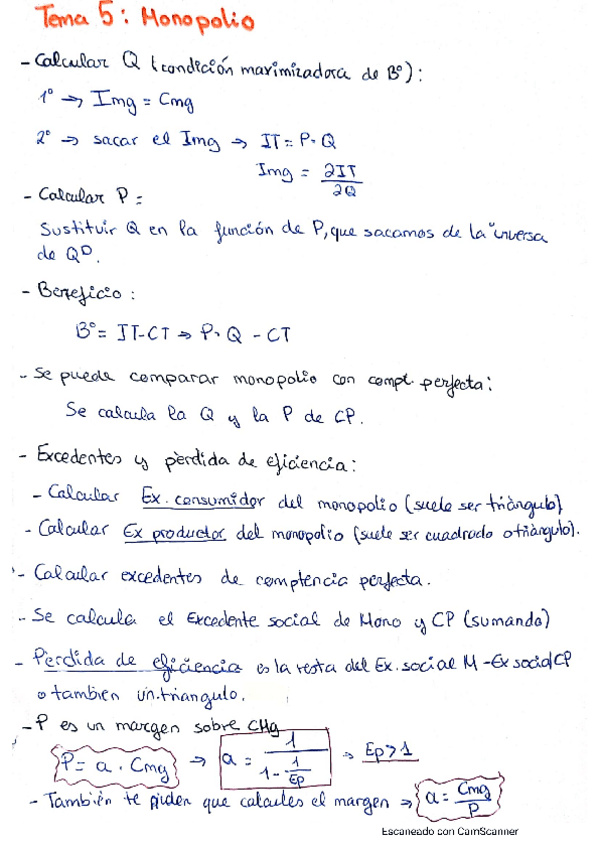 Tema 5: Monopolio
- Calcular Q (condición maximizadora de Bº):
1º → Img = Cmg
2º → sacar el Img → IT = P·Q
Img = ∂IT/∂Q
- Calcular P =
Sustituir Q en la función de P, que sacamos de la inversa
de Qᴰ.
- Beneficio:
Bº = IT - CT → P·Q - CT
- Se puede comparar monopolio con compt. perfecta:
Se calcula la Q y la P de CP.
- Excedentes y pèrdida de eficiencia:
- Calcular Ex. consumidor del monopolio (suele ser triàngulo)
- Calcular Ex productor del monopolio (suele ser cuadrado o triàngulo).
- Calcular excedentes de comptencia perfecta.
- Se calcula el Excedente social de Mono y CP (sumando)
- Pèrdida de eficiencia es la resta del Ex. social M - Ex social CP
o tambien un triangulo.
- P es un margen sobre CMg
P = a · Cmg → a = 1/(1 - 1/Ep) → Ep > 1
- También te piden que calcules el margen → a = Cmg/P
Escaneado con CamScanner